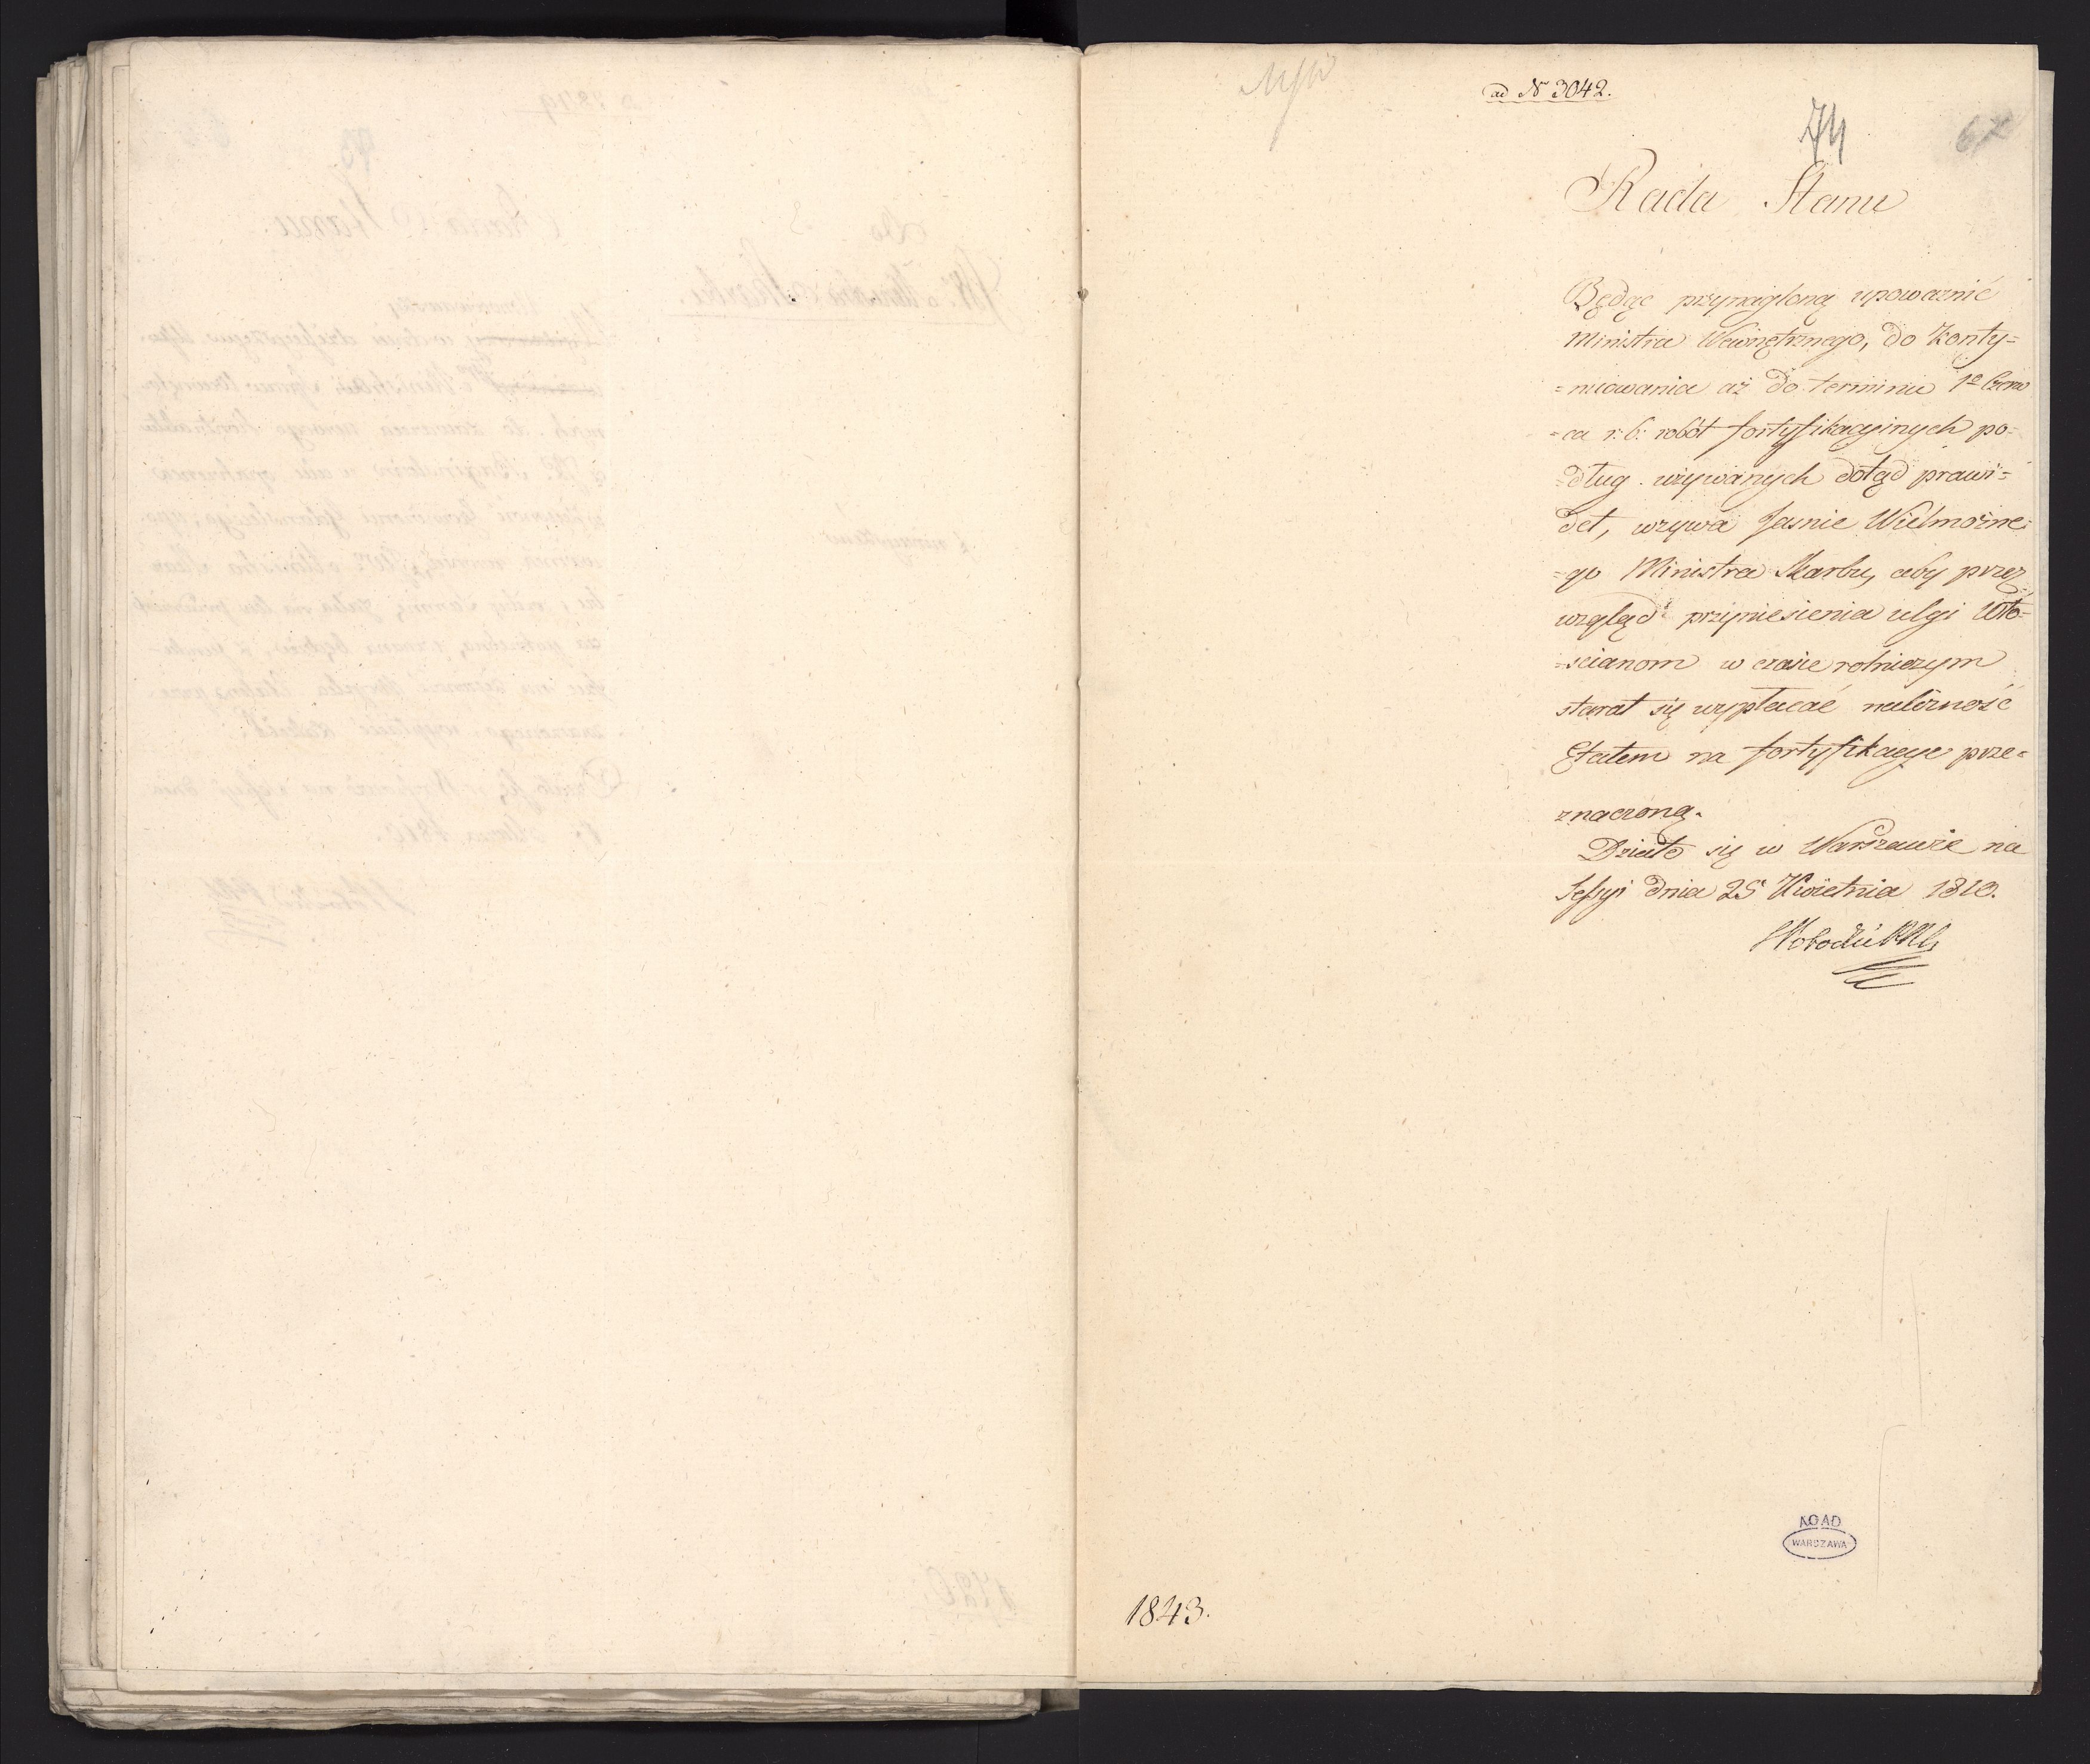 ad N 3042.
74
67
Rada Stanu
Będąc przynagloną upoważnić
Ministra Wewnętrznego, do konty=
=nuowania aż do terminu 1º Czerw
=ca r: b: robót fortyfikacyinych po=
=dług używanych dotąd prawi=
deł, wzywa Jasnie Wielmożne=
=go Ministra Skarbu, aby przez
wzgląd przyniesienia ulgi Wło=
=scianom w czasie rolniczym
starał się wypłacać należność
Etatem na fortyfikacye prze=
znaczoną.
Działo się w Warszawie na
Sessyi dnia 25 Kwietnia 1810.
1843.
AGAD
WARSZAWA